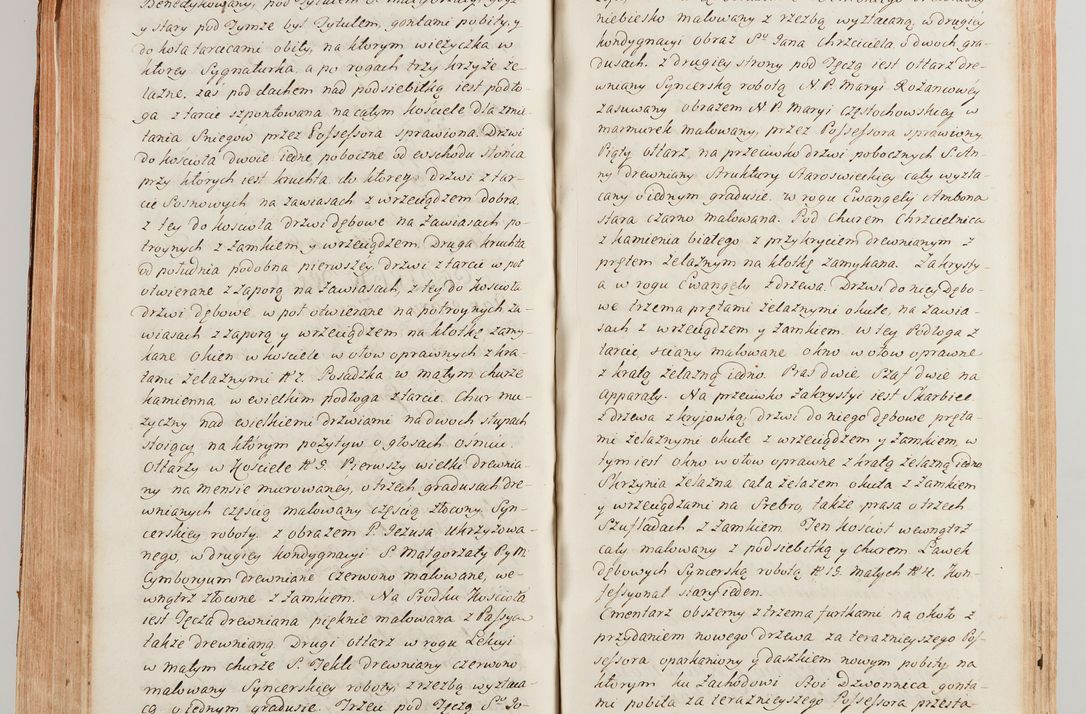 y stary pod Tymze był Tytułem, gontami pobity, y
do koła tarcicami obity, na ktorym wieżyczka w
ktorey Sygnaturka, a po rogach trzy krzyże że-
lazne. zaś pod dachem nad podsiebitką iest podło-
ga z tarcic szpontowana na całym kościele dla zmia-
tania Sniegow przez Possessora sprawiona. Drzwi
do kościoła dwoie iedne poboczne od wschodu słońca
przy ktorych iest kruchta. do ktorey drzwi z tar-
cic Sosnowych na zawiasach z wrzeciądzem dobra.
z tey do kościoła drzwi dębowe na Zawiasach po-
troynych z zamkiem, y wrzeciądzem. Druga kruchta
od południa podobna pierwszey. drzwi z tarcic w poł
otwierane z zaporą na zawiasach, z tey do kościoła
drzwi dębowe, w poł otwierane na potroynych za-
wiasach z zaporą y wrzeciądzem na kłotkę zamy-
kane. Okien w kościele w ołow oprawnych z kra-
tami żelaznymi N 7. Posadzka w małym churze
kamienna w wielkim podłoga z tarcic. Chur mu-
zyczny nad wielkiemi drzwiami na dwoch słupach
stoiący na którym pozytyw o głosach ośmiu.
Ołtarzy w kościele N 5. Pierwszy wielki drewnia-
ny na mensie murowaney, o trzech gradusach dre-
wnianych częścią malowany częścią złocony Syn-
cerskiey roboty. z obrazem P. Jezusa Ukrzyżowa-
nego, w drugiey kondygnacyi S. Małgorzaty P. y M.
Cymboryum drewniane czerwono malowane, we-
wnątrz złocone z zamkiem. Na Srodku Kościoła
iest Tęcza drewniana pięknie malowana z Passyą
także drewnianą. Drugi ołtarz w rogu Lekcyi
w małym churze S. Tekli drewniany czerwono
malowany Syncerskiey roboty, z rzezbą wyzłaca-
cą o iednym gradusie. Trzeci pod Tęczą S. Jo-
niebiesko malowany z rzezbą wyzłacaną, w drugiey
kondygnacyi obraz S. Jana Chrzciciela o dwoch gra-
dusach. z drugiey strony pod Tęczą iest ołtarz dre-
wniany Syncerską robotą N. P. Maryi Rożancowey
zasuwany obrazem N. P. Maryi Częstochowskiey w
marmurek malowany, przez Possessora sprawiony.
Piąty ołtarz, na przeciwko drzwi pobocznych S. An-
ny drewniany Struktury Staroswieckiey cały wyzła-
cany o iednym gradusie. w rogu Ewangely Ambona
stara czarno malowana. Pod Churem Chrzcielnica
z kamienia białego z przykryciem drewnianym z
prętem żelaznym na kłotkę zamykana. Zakrysty-
a w rogu Ewangely z drzewa. Drzwi do niey Dębo-
we trzema prętami żelaznymi okute, na zawia-
sach z wrzeciądzem y zamkiem. w tey Podłoga z
tarcic, sciany malowane okno w ołow oprawne
z kratą żelazną iedno. Pras dwie, Szaf dwie na
apparaty. Na przeciwko Zakrystyi iest Skarbiec
z drzewa z kryjowką, drzwi do niego Dębowe pręta-
mi żelaznymi okute z wrzeciądzem y zamkiem, w
tym iest okno w ołow oprawne z kratą żelazną iedno
Skrzynia żelazna cała żelazem okuta z zamkiem
y wrzeciądzami na Srebro, także prasa o trzech
Szufladach z zamkiem. Ten kościoł wewnątrz
cały malowany z podsiebitką y churem. Ławek
dębowych Syncerską robotą N 13. małych N 4. Kon-
fessyonał stary ieden.
Cmentarz obszerny z trzema furtkami na około z
przydaniem nowego drzewa za teraznieyszego Pos-
sessora oparkaniony y daszkiem nowym pobity na
którym ku Zachodowi Stoi Dzwonnica gonta-
mi pobita za teraznieyszego Possessora przesta